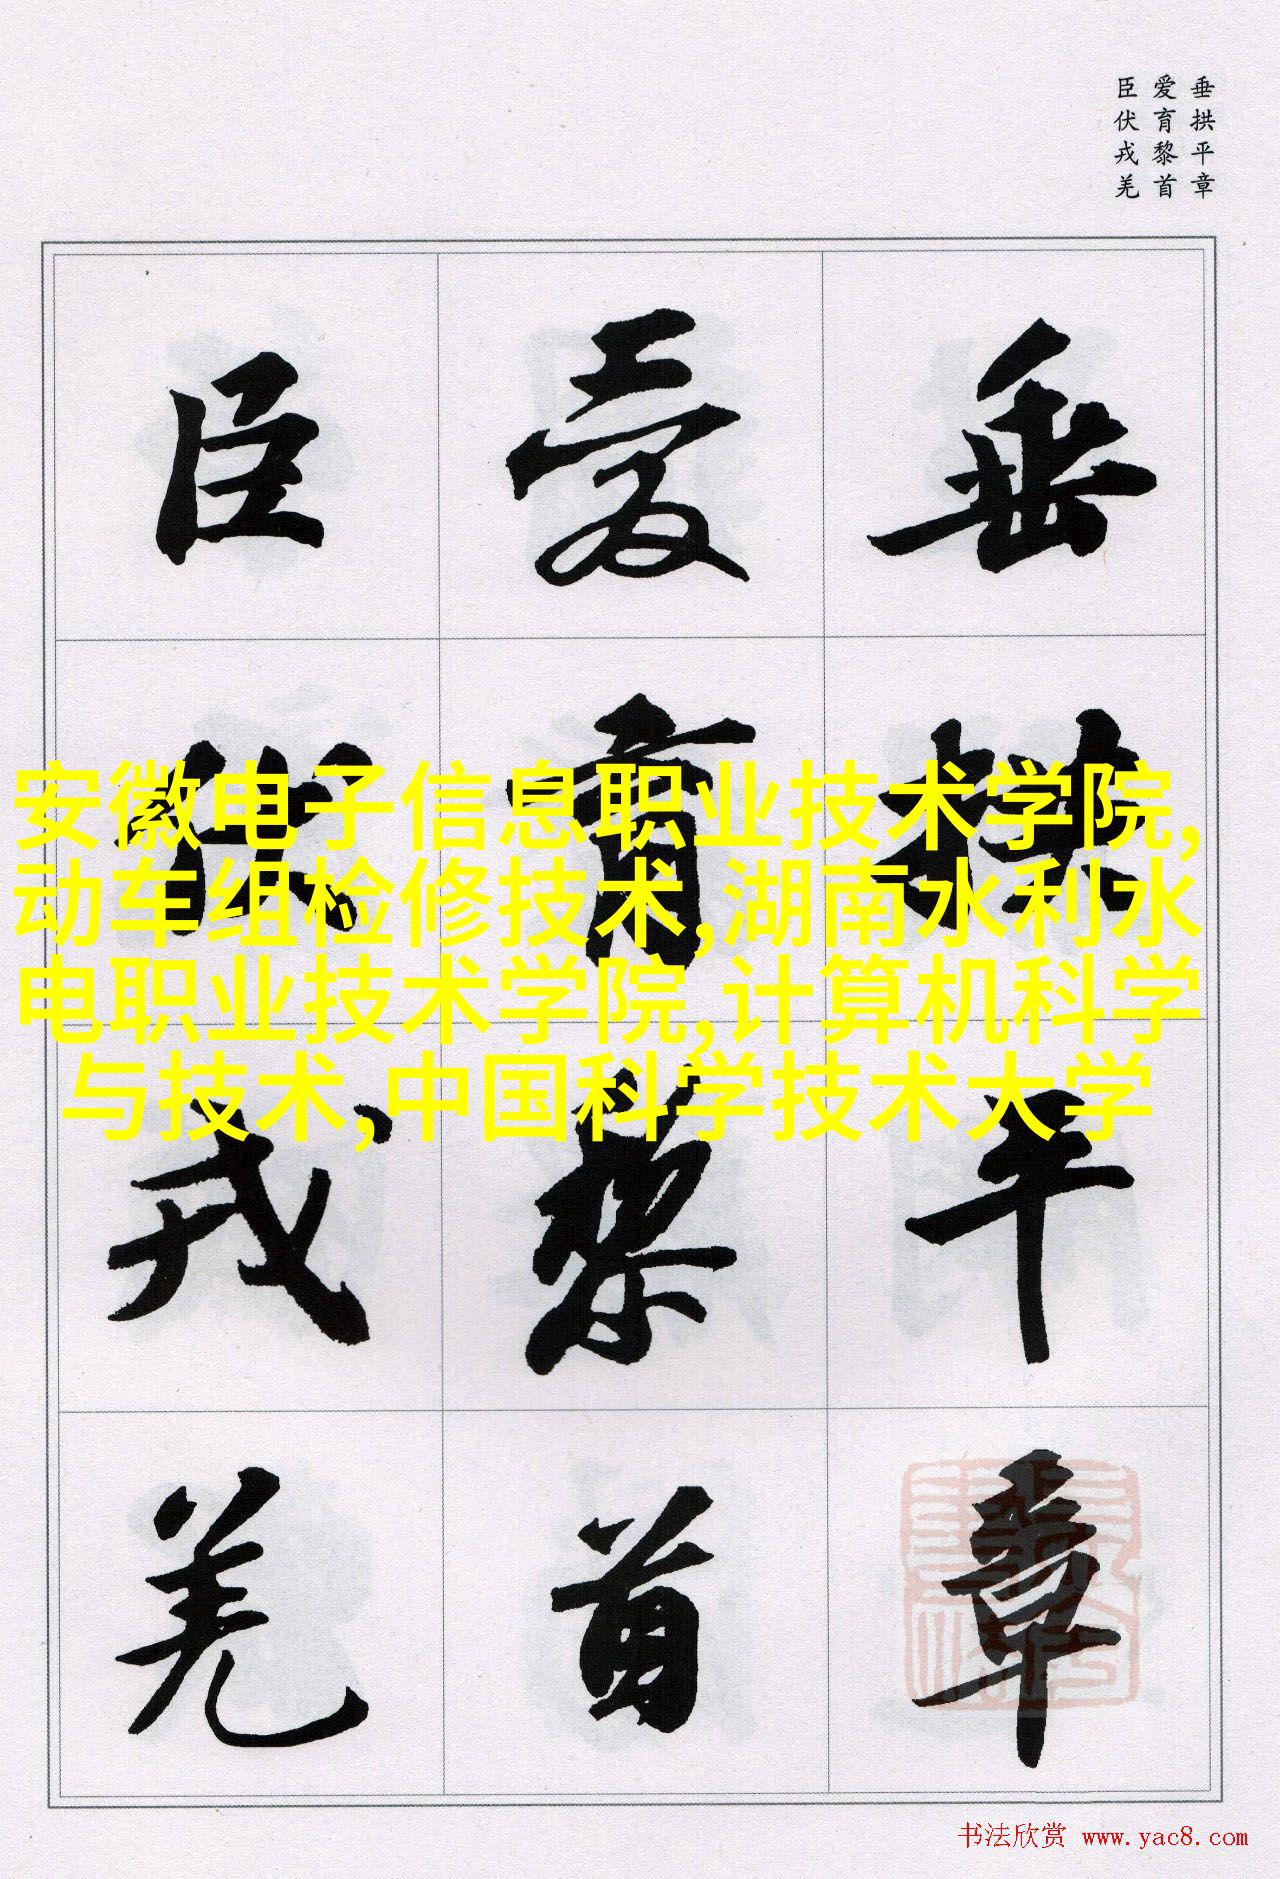 垂拱平章
爱育黎首
臣伏戎羌
垂拱平章
爱育黎首
臣伏戎羌
安徽电子信息职业技术学院,
动车组检修技术,湖南水利水
电职业技术学院,计算机科学
与技术,中国科学技术大学
书法欣赏 www.yac8.com